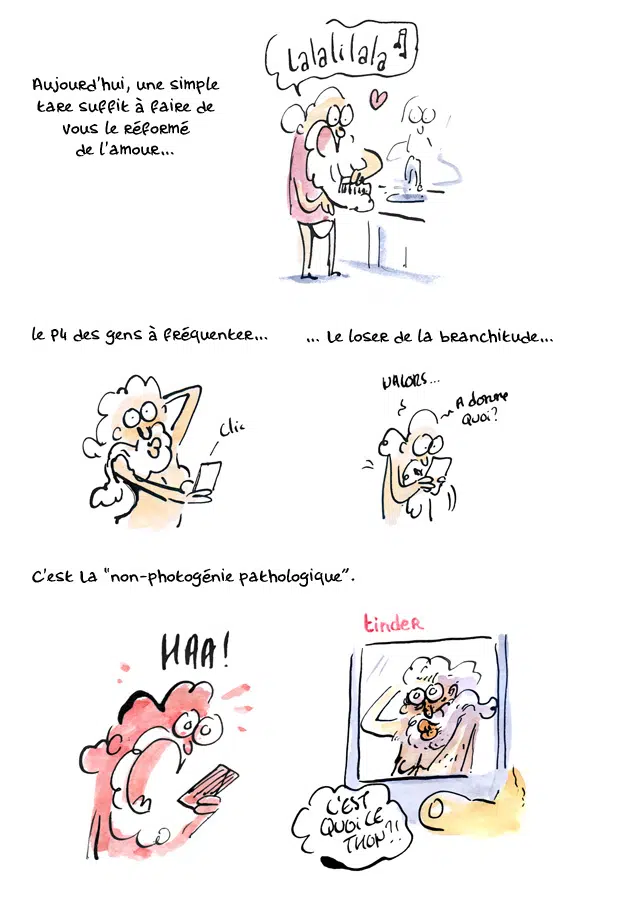 Lalalilala
Aujourd'hui, une simple
tare suffit à faire de
vous le réformé
de l'amour...
le P4 des gens à fréquenter...
... Le loser de la branchitude...
clic
VALORS...
A donne
quoi?
C'est la "non-photogénie pathologique".
HAA!
tinder
C'EST
QUOI CE
THON?!